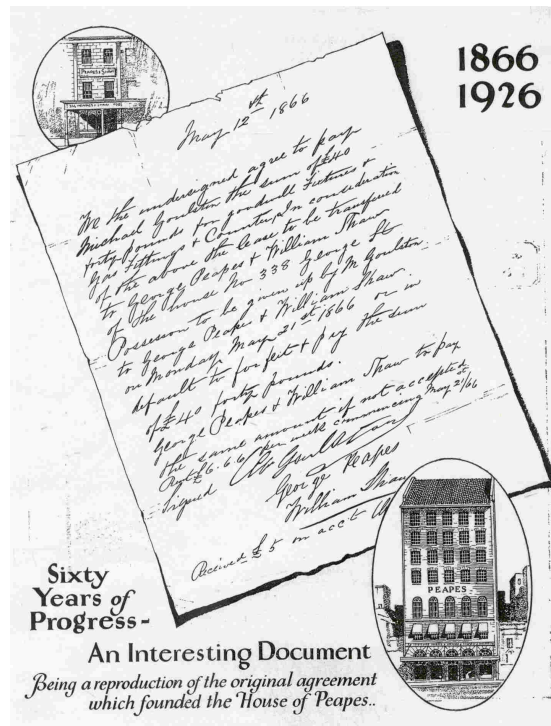 1866
1926
PEAPES & SHAW
May 12th 1866
We the undersigned agree to pay
Michael Goulston the sum of £40
forty pounds for goodwill Fixtures &
Gas Fittings & Counter, In consideration
of the above the lease to be transferred
to George Peapes & William Shaw
of the house No 338 George St
Possession to be given up by M Goulston
to George Peapes & William Shaw
on Monday May 21st 1866 or in
default to forfeit & pay the sum
of £40 forty pounds.
George Peapes & William Shaw to pay
the same amount if not accepted
Rent £6.6.6 per week commencing May 21st/66
Signed M Goulston
George Peapes
William Shaw
Received £5 on acc't
PEAPES
Sixty
Years of
Progress-
An Interesting Document
Being a reproduction of the original agreement
which founded the House of Peapes..